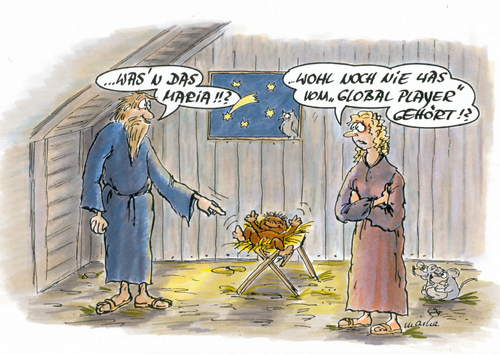 ...WAS'N DAS
MARIA!!?
..WOHL NOCH NIE WAS
VOM „GLOBAL PLAYER“
GEHÖRT!?